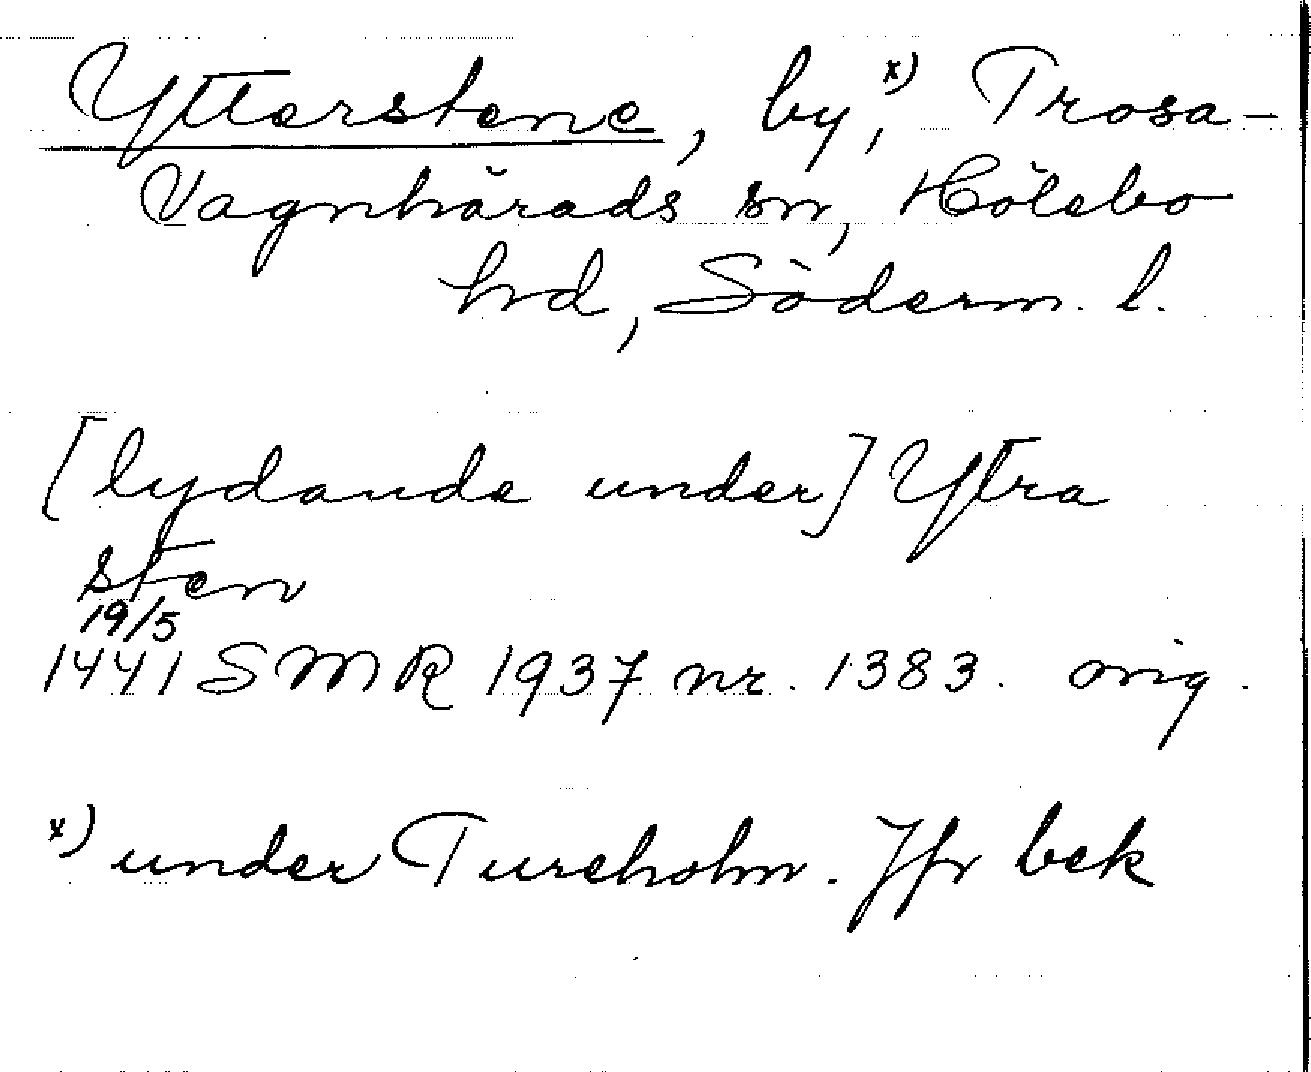 Ytterstene, by,x) Trosa-
Vagnhärads sn, Hölebo
hd, Söderm. l.
[lydande under] Ytra
sten
19/5
1441 SMR 1937 nr. 1383. orig.
x) under Tureholm. Jfr bek